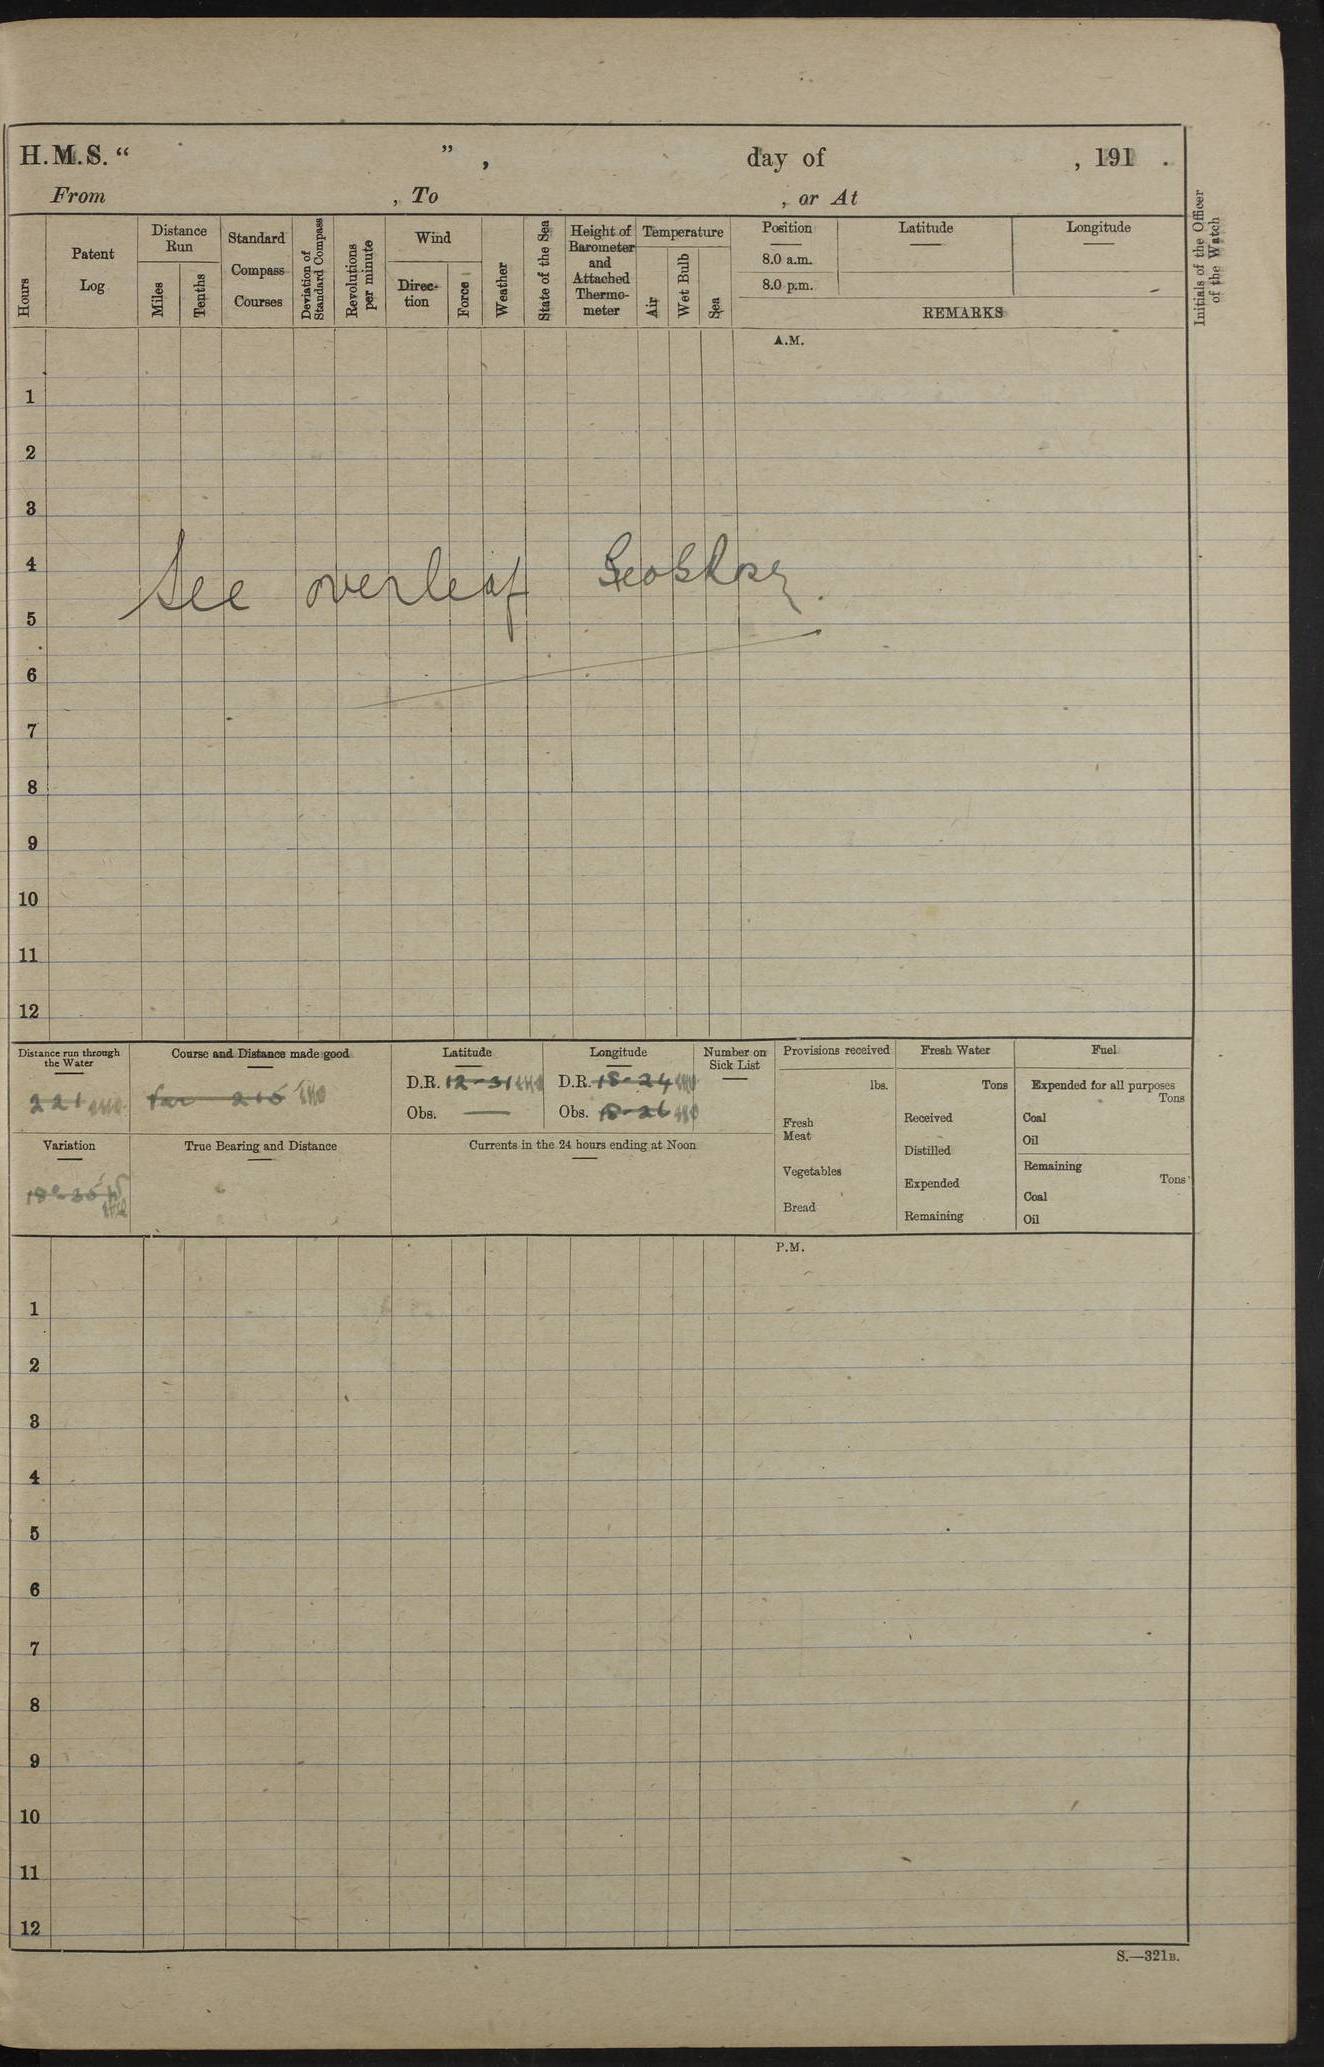 H.M.S. “ ” , day of , 191 .
From , To , or At
Hours
Patent Log
Distance Run
Miles
Tenths
Standard Compass Courses
Deviation of Standard Compass
Revolutions per minute
Wind
Direction
Force
Weather
State of the Sea
Height of Barometer and Attached Thermometer
Temperature
Air
Wet Bulb
Sea
Position
8.0 a.m.
8.0 p.m.
Latitude
Longitude
REMARKS
Initials of the Officer of the Watch
A.M.
1
2
3
4
See overleaf
5
6
7
8
9
10
11
12
Distance run through the Water
221
Course and Distance made good
215
Latitude
D.R. 12-31
Obs. —
Longitude
D.R. 18-24
Obs. 18-26
Number on Sick List
Variation
True Bearing and Distance
Currents in the 24 hours ending at Noon
Provisions received
lbs.
Fresh Meat
Vegetables
Bread
Fresh Water
Tons
Received
Distilled
Expended
Remaining
Fuel
Expended for all purposes
Tons
Coal
Oil
Remaining
Tons
Coal
Oil
P.M.
1
2
3
4
5
6
7
8
9
10
11
12
S.—321B.